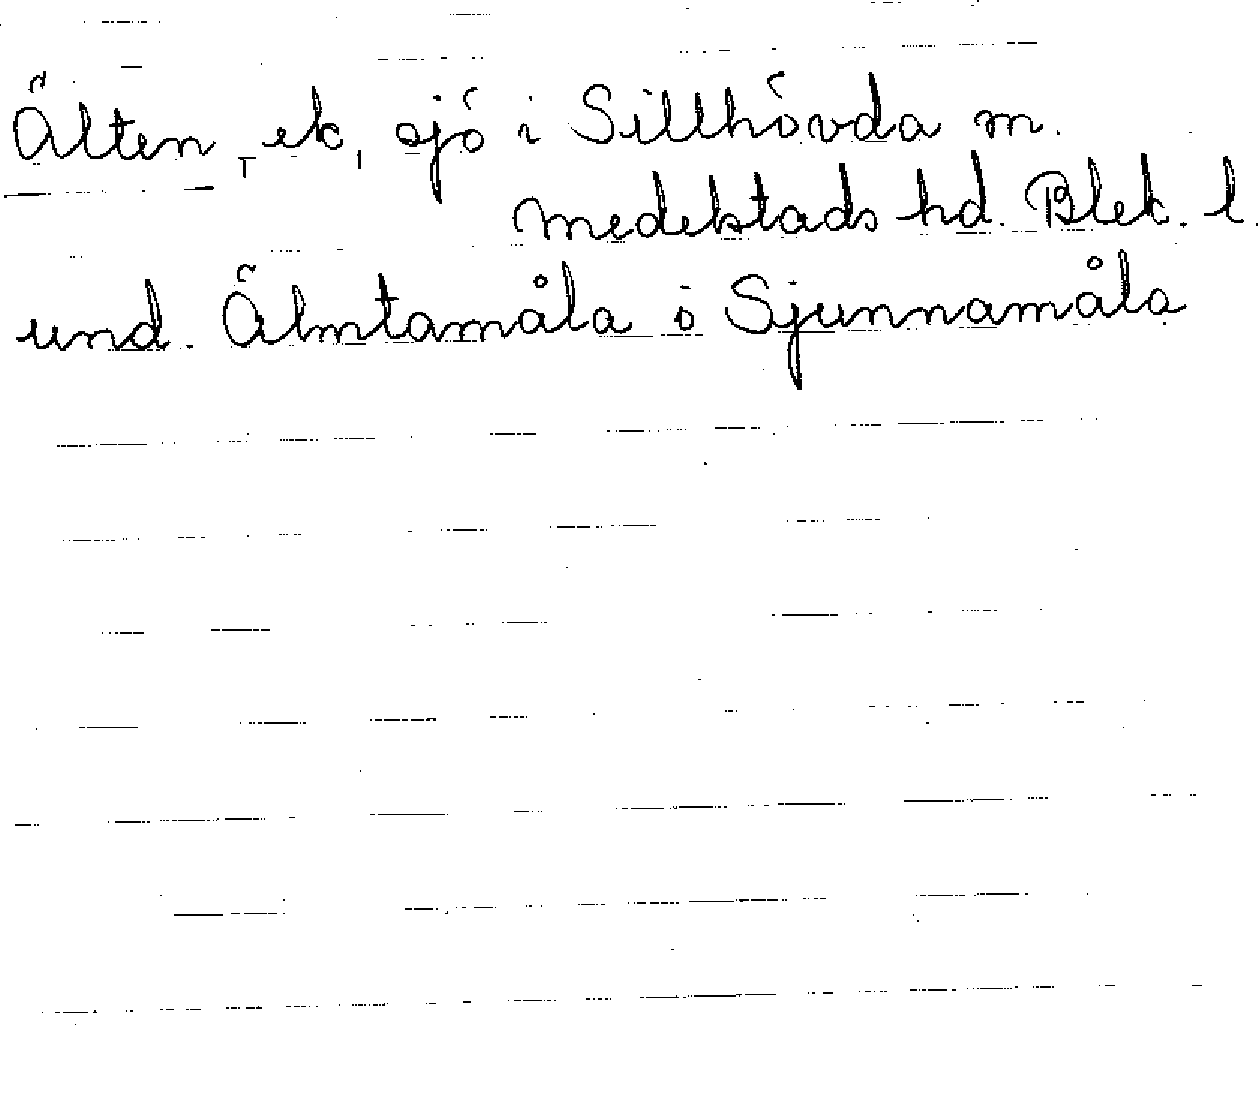 Älten, ek, sjö i Sillhövda sn.
Medelstads hd. Blek. l.
und. Älmtamåla o Sjunnamåla